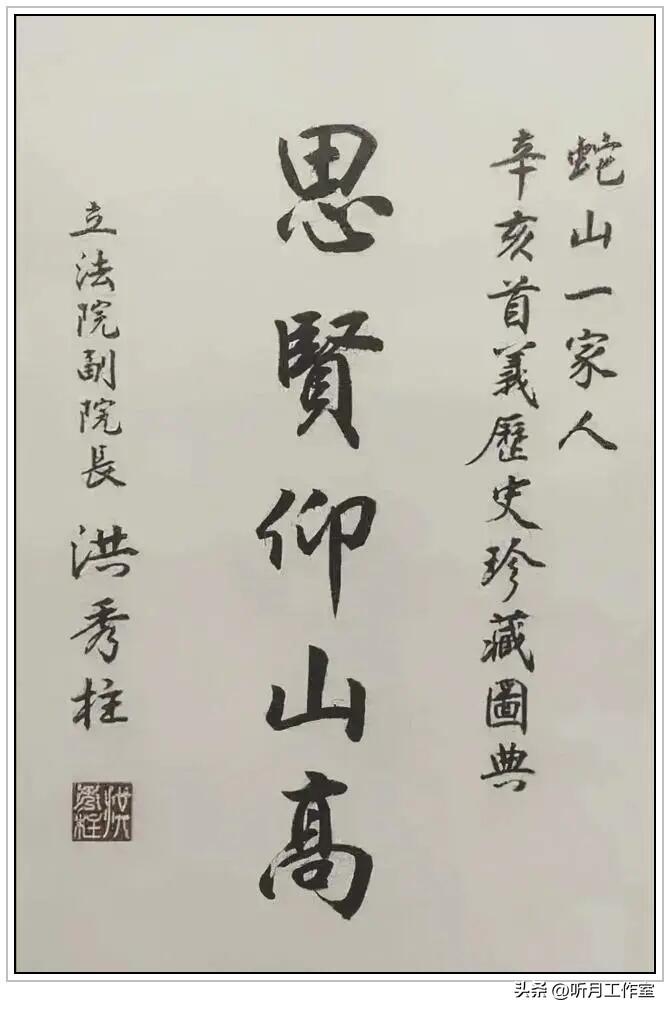 蛇山一家人
辛亥首義歷史珍藏圖典
思賢仰山高
立法院副院長 洪秀柱
洪秀柱
头条 @听月工作室